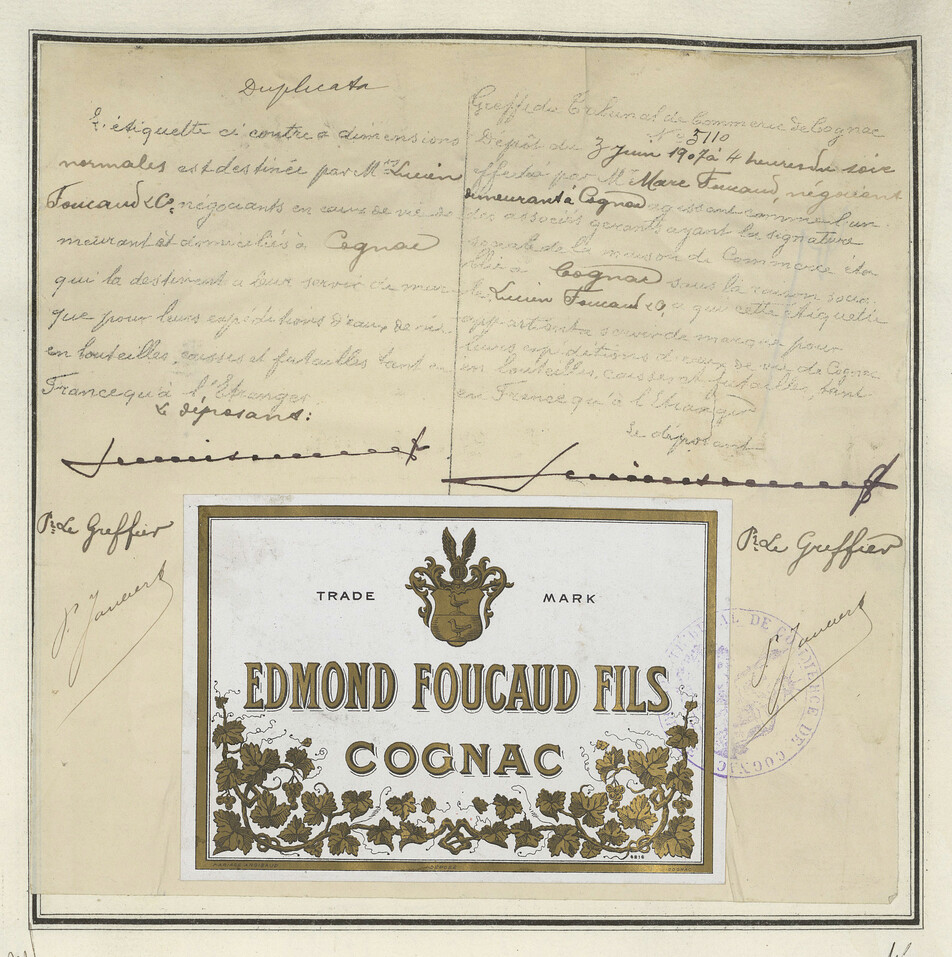 Duplicata
L'étiquette ci contre à dimensions
normales est destinée par Mrs Lucien
Foucaud & Co. négociants en eaux de vie de
meurant et domiciliés à Cognac
qui la destinent a leur servir de mar
que pour leurs expéditions d'eaux de vie
en bouteilles, caisses et futailles tant en
France qu'à l'Etranger
Le déposant:
Pr. Le Greffier
Greffe du Tribunal de Commerce de Cognac
No 5110
Dépôt du 3 Juin 1907 à 4 heures du soir
effectué par Mr Marc Foucaud, négociant
demeurant à Cognac agissant comme l'un
des associés gérants ayant la signature
sociale de la maison de Commerce éta
blie à Cognac sous la raison socia
le Lucien Foucaud & Co, a qui cette étiquette
appartient a servir de marque pour
leurs expéditions d'eaux de vie de Cognac
en bouteilles, caisses et futailles, tant
en France qu'à l'Etranger
Le déposant
Pr. Le Greffier
TRADE MARK
EDMOND FOUCAUD FILS
COGNAC
TRIBUNAL DE COMMERCE DE COGNAC